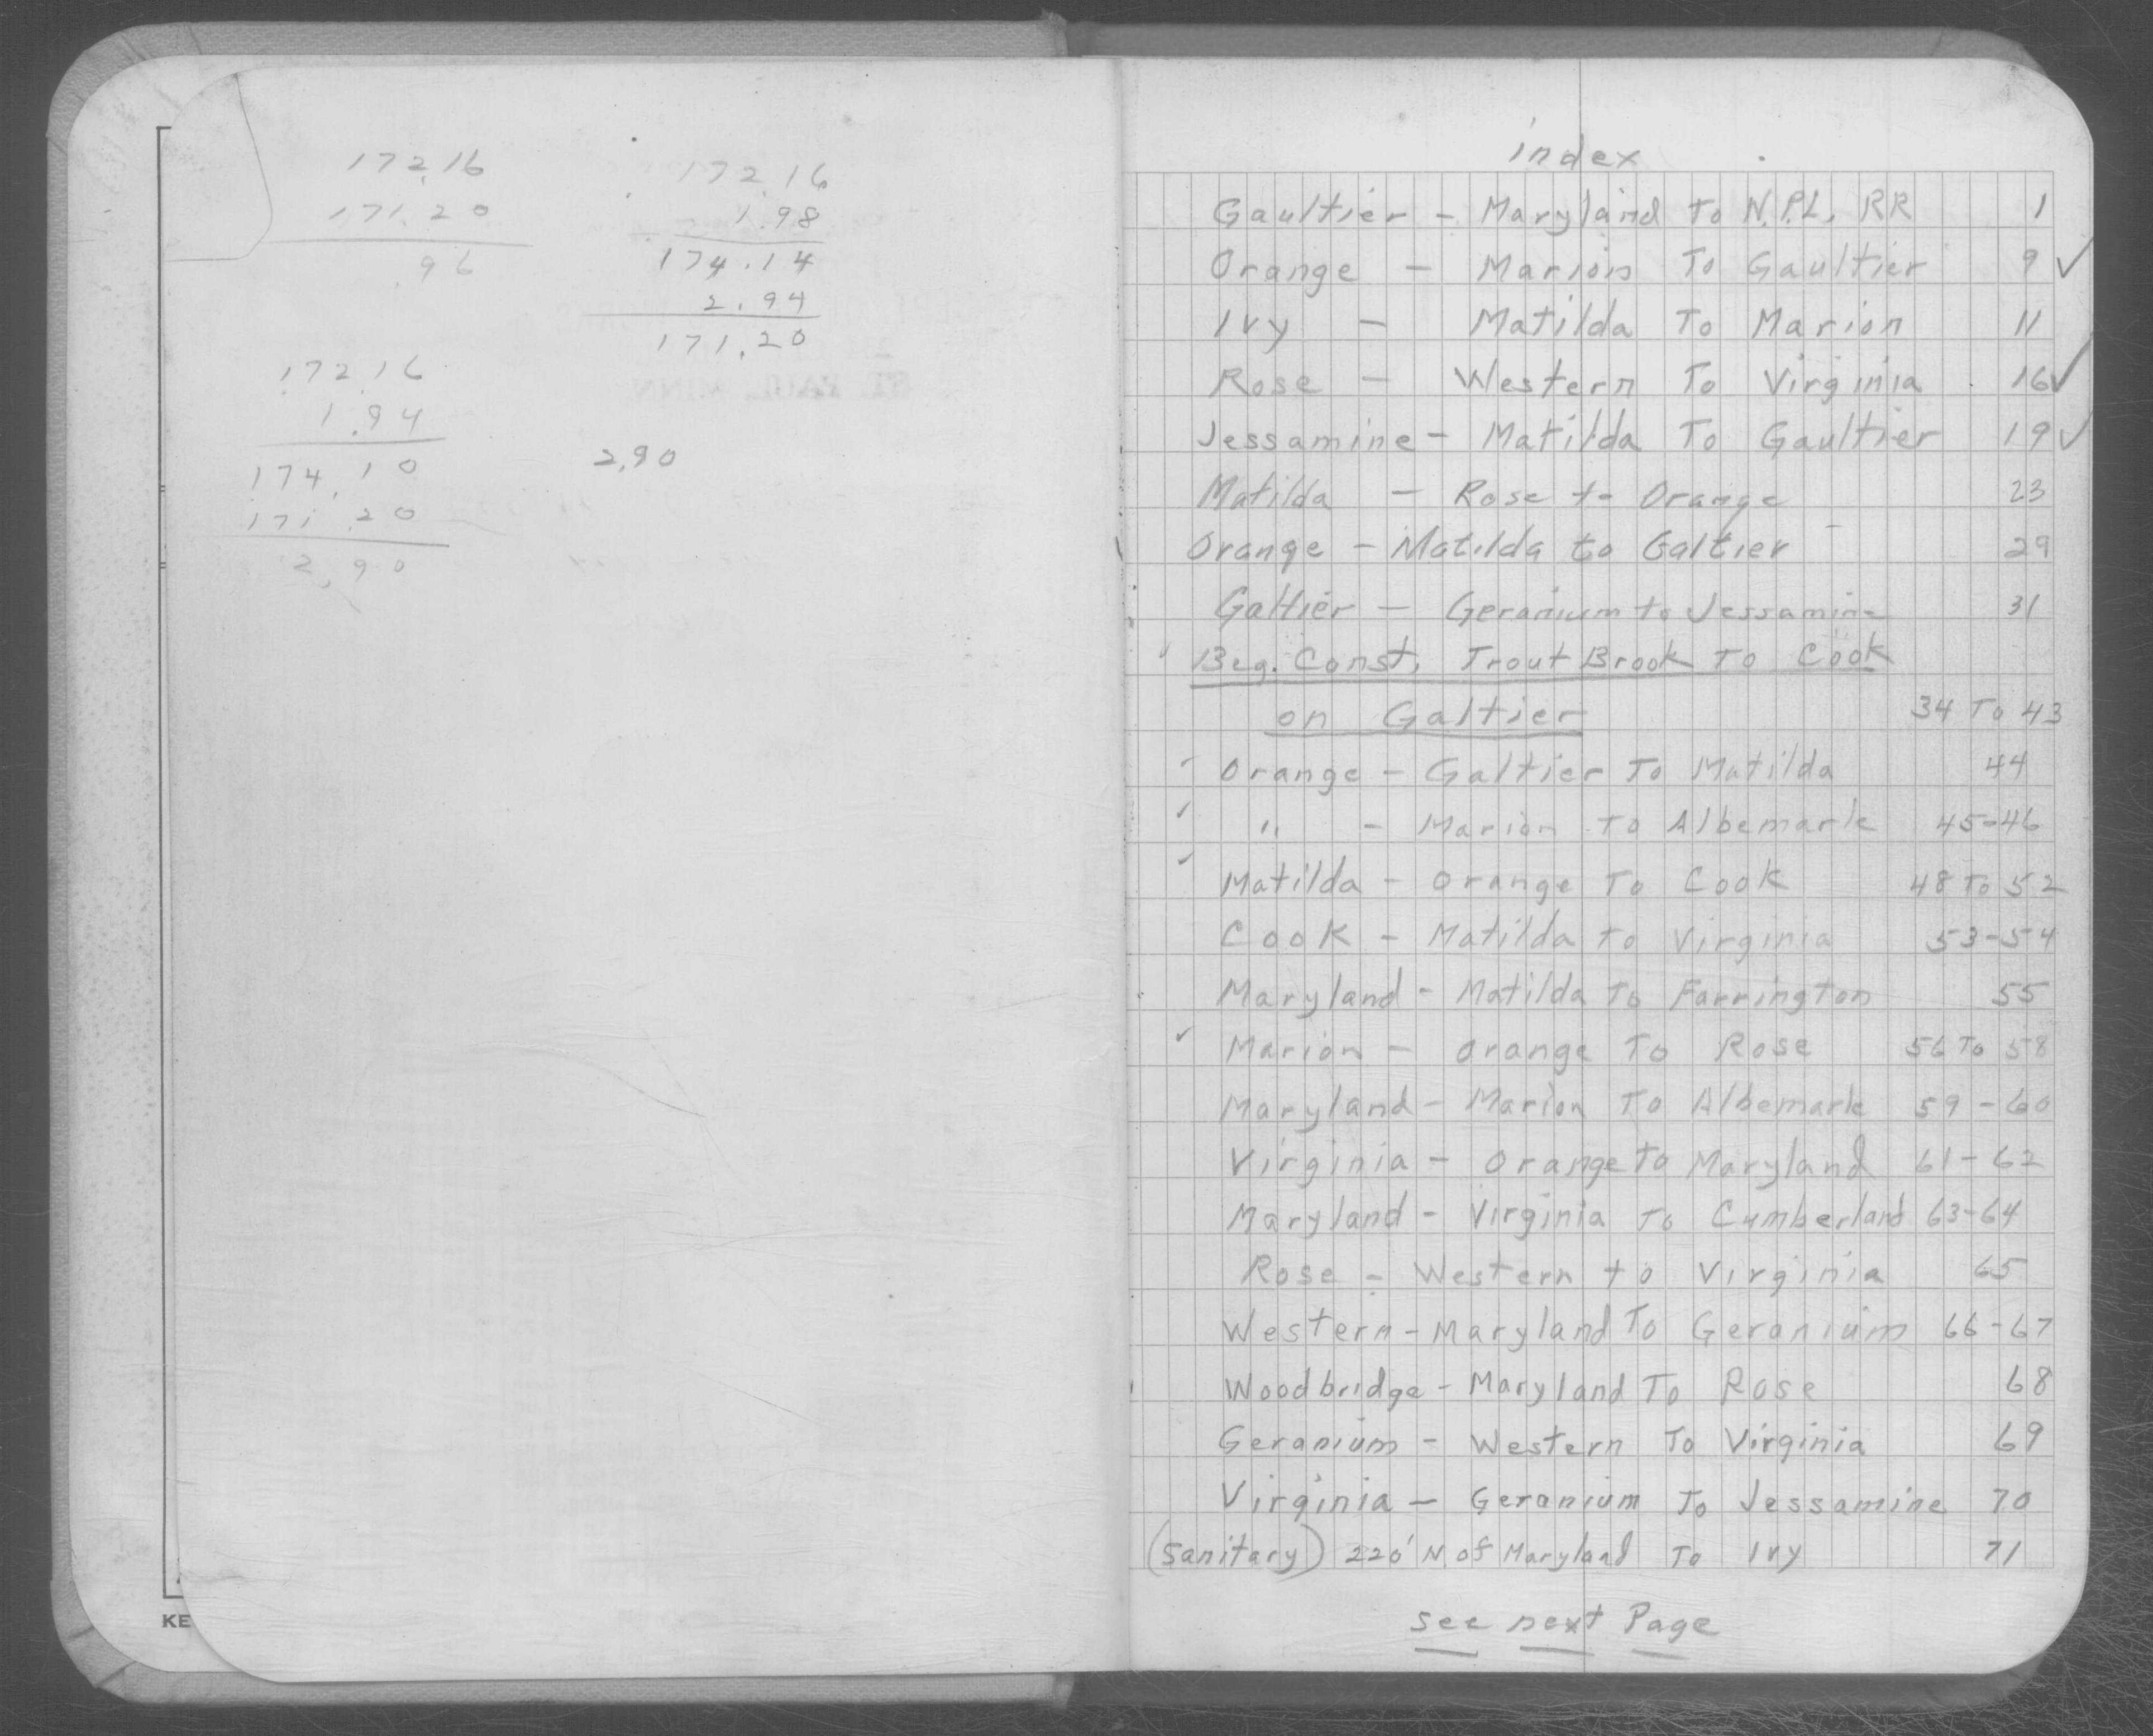 172.16
171.20
.96
172.16
1.98
174.14
2.94
171.20
172.16
1.94
174.10
171.20
2.90
2.90
ST. PAUL, MINN
KE
index
Gaultier - Maryland To N.P.L. RR 1
Orange - Marion To Gaultier 9 ✓
Ivy - Matilda To Marion 11
Rose - Western To Virginia 16 ✓
Jessamine - Matilda To Gaultier 19 ✓
Matilda - Rose to Orange 23
Orange - Matilda to Galtier 29
Galtier - Geranium to Jessamine 31
✓ Beg. Const. Trout Brook To Cook
on Galtier 34 To 43
✓ Orange - Galtier To Matilda 44
✓ " - Marion To Albemarle 45-46
✓ Matilda - Orange To Cook 48 To 52
Cook - Matilda to Virginia 53-54
Maryland - Matilda To Farrington 55
✓ Marion - Orange To Rose 56 To 58
Maryland - Marion To Albemarle 59-60
Virginia - Orange to Maryland 61-62
Maryland - Virginia To Cumberland 63-64
Rose - Western to Virginia 65
Western - Maryland To Geranium 66-67
Woodbridge - Maryland To Rose 68
Geranium - Western To Virginia 69
Virginia - Geranium To Jessamine 70
(Sanitary) 220' N. of Maryland To Ivy 71
see next Page